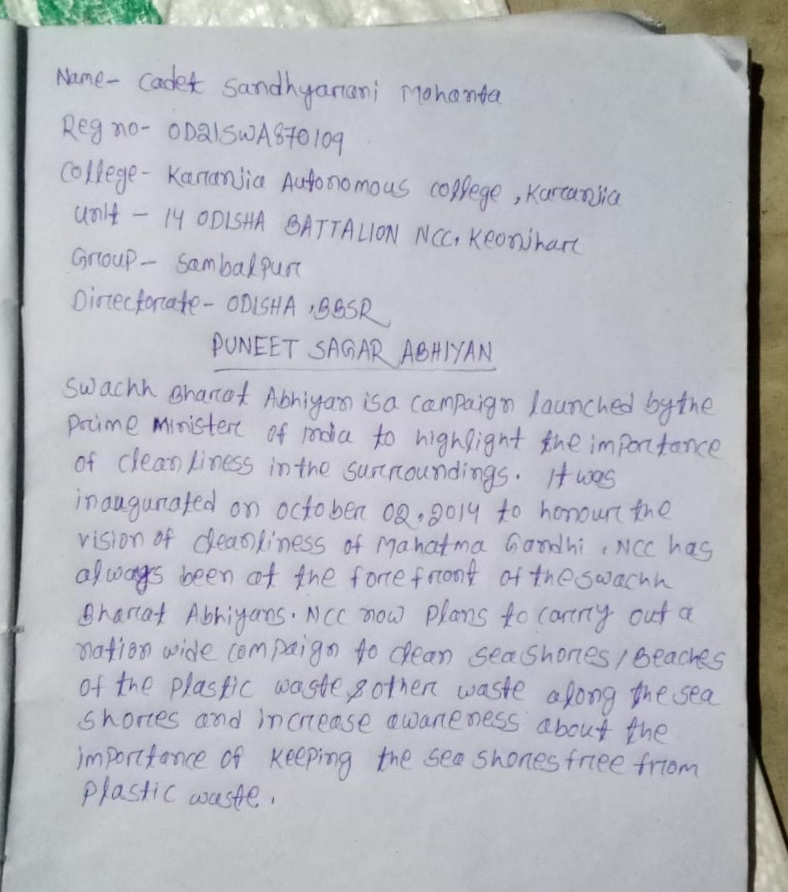 Name- Cadet Sandhyarani Mohanta
Reg no- OD21SWA870109
College- Karanjia Autonomous college, Karanjia
Unit - 14 ODISHA BATTALION NCC, Keonjhar
Group- Sambalpur
Directorate- ODISHA, BBSR
PUNEET SAGAR ABHIYAN
Swachh Bharat Abhiyan is a campaign launched by the
Prime Minister of India to highlight the importance
of cleanliness in the surroundings. It was
inaugurated on october 02, 2014 to honour the
vision of cleanliness of Mahatma Gandhi. NCC has
always been at the forefront of the swachh
Bharat Abhiyans. NCC now plans to carry out a
nation wide campaign to clean seashores/Beaches
of the plastic waste & other waste along the sea
shores and increase awareness about the
importance of keeping the sea shores free from
plastic waste.